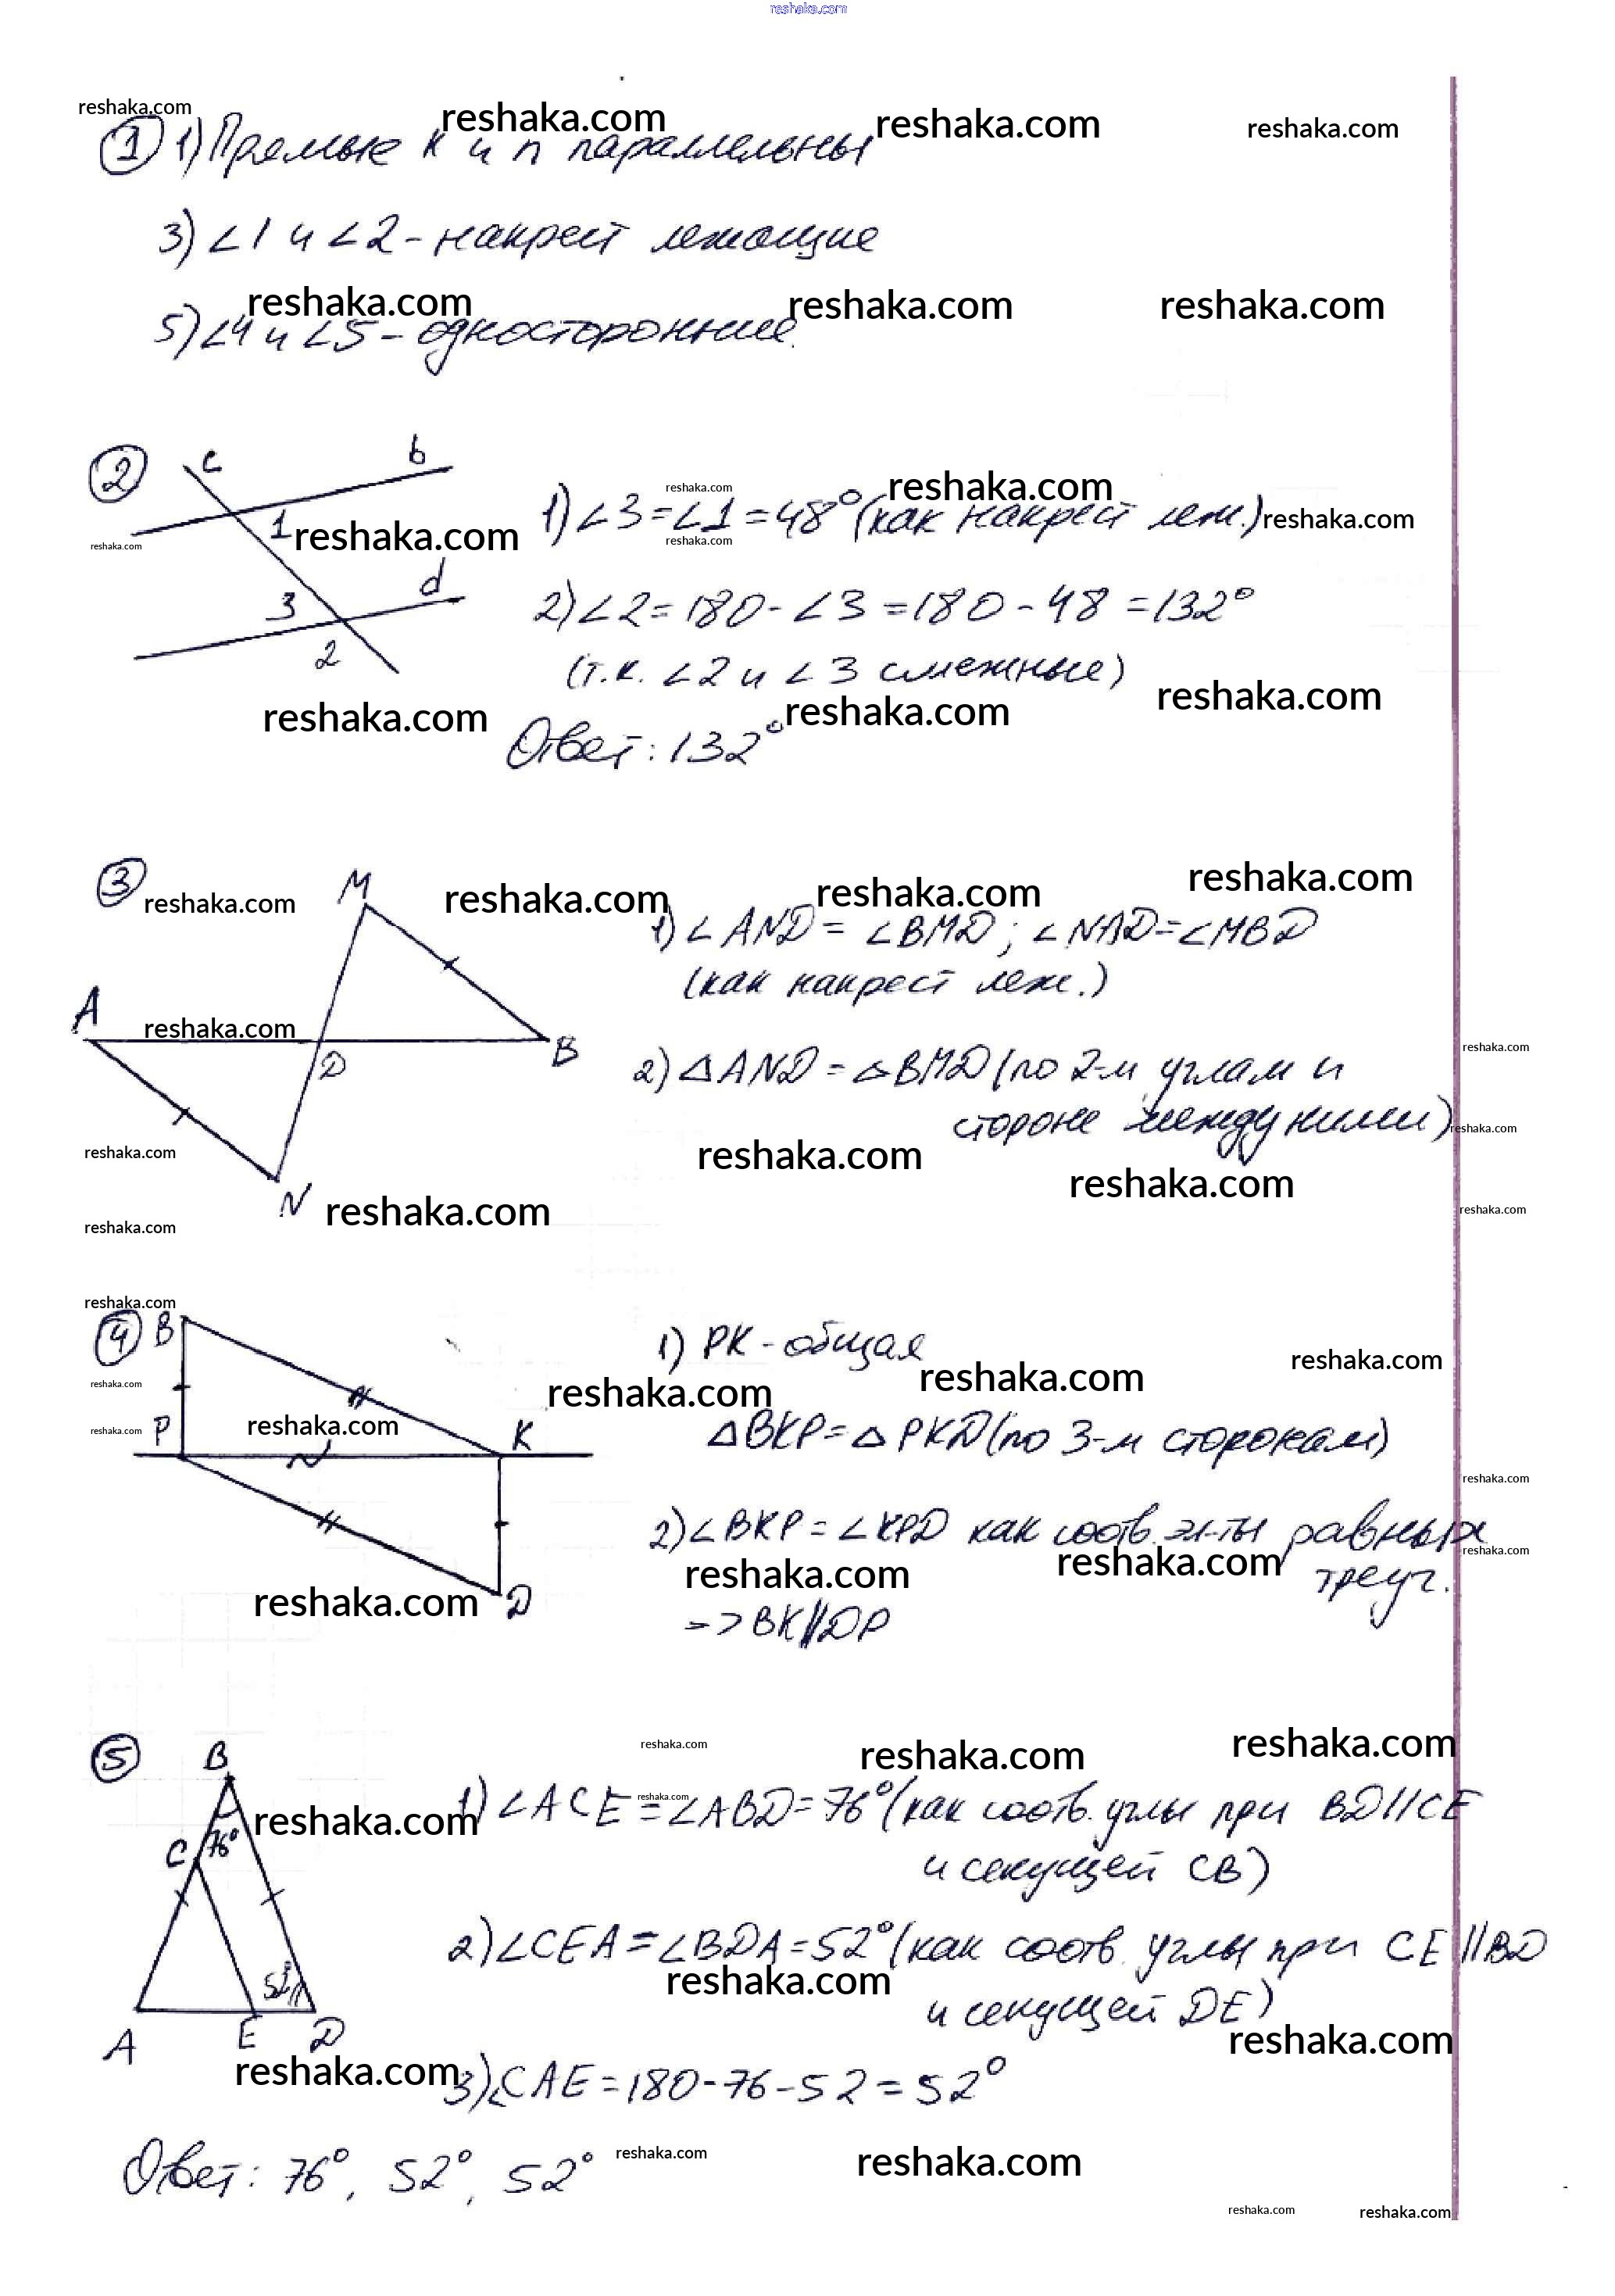 reshaka.com
reshaka.com reshaka.com reshaka.com reshaka.com
① 1) Прямые к и п параллельны
3) ∠1 и ∠2 - накрест лежащие
reshaka.com reshaka.com reshaka.com
5) ∠4 и ∠5 - односторонние.
② c b
reshaka.com reshaka.com
1 reshaka.com 1) ∠3 = ∠1 = 48° (как накрест леж.) reshaka.com
reshaka.com reshaka.com
3 d 2) ∠2 = 180 - ∠3 = 180 - 48 = 132°
2 (т.к. ∠2 и ∠3 смежные)
reshaka.com reshaka.com reshaka.com
Ответ: 132°
③ reshaka.com M reshaka.com reshaka.com reshaka.com
1) ∠AND = ∠BMD ; ∠NAD = ∠MBD
(как накрест леж.)
A reshaka.com D B reshaka.com
2) △AND = △BMD (по 2-м углам и
стороне между ними) reshaka.com
reshaka.com reshaka.com reshaka.com
N reshaka.com reshaka.com
reshaka.com
reshaka.com
④ B 1) PK - общая
reshaka.com reshaka.com reshaka.com reshaka.com
reshaka.com P reshaka.com K △BKP = △PKD (по 3-м сторонам)
reshaka.com
2) ∠BKP = ∠KPD как соотв. эл-ты равных
reshaka.com reshaka.com reshaka.com
треуг.
reshaka.com D => BK∥DP
⑤ B reshaka.com reshaka.com reshaka.com
reshaka.com
C 76° reshaka.com 1) ∠ACE = ∠ABD = 76° (как соотв. углы при BD//CE
и секущей CB)
2) ∠CEA = ∠BDA = 52° (как соотв. углы при CE∥BD
52° reshaka.com
и секущей DE)
A E D reshaka.com
reshaka.com 3) ∠CAE = 180 - 76 - 52 = 52°
Ответ: 76°, 52°, 52° reshaka.com reshaka.com
reshaka.com reshaka.com